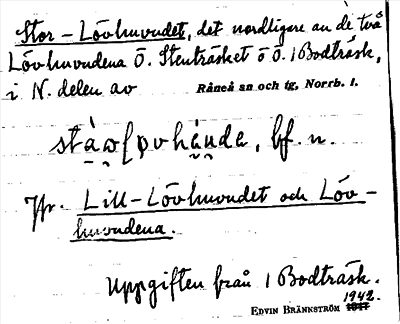 Stor-Lövhuvudet, det nordligare av de två
Lövhuvudena Ö. Stenträsket o Ö. i Bodträsk,
i N. delen av Råneå sn och tg, Norrb. l.
bf. n.
Jfr. Lill-Lövhuvudet och Löv-
huvudena.
Uppgiften från i Bodträsk.
1942.
EDVIN BRÄNNSTRÖM 1941